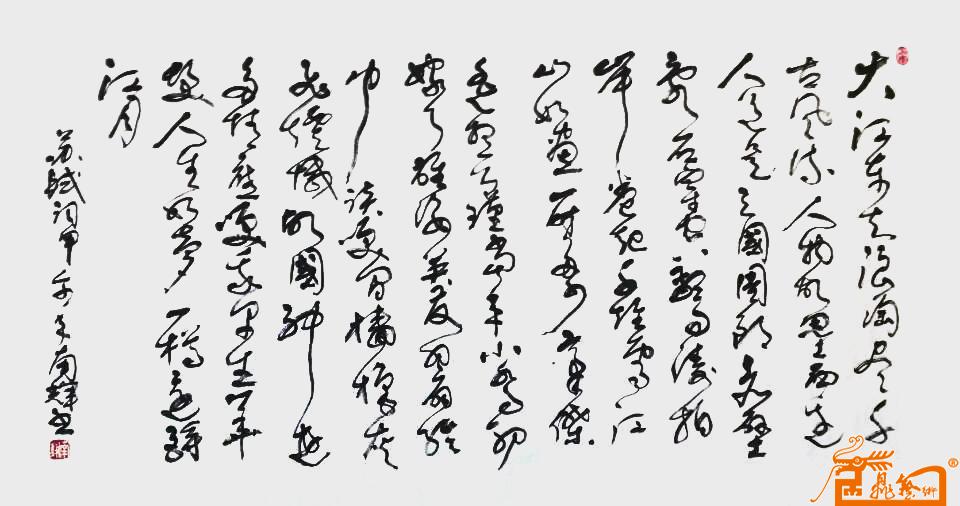 大江东去浪淘尽千
古风流人物故垒西边
人道是三國周郎赤壁
乱石崩云惊涛裂岸
卷起千堆雪江
山如画一时多少豪傑
遥想公瑾當年小乔初
嫁了雄姿英发羽扇纶
巾谈笑间樯橹灰
飞烟灭故國神遊
多情应笑我早生华
髮人生如梦一樽还酹
江月
苏轼词甲午年南辉书